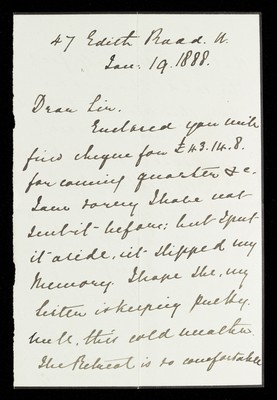 47 Edith Road. W.
Jan: 19. 1888.
Dear Sir.
Enclosed you will
find cheque for £43.14.8.
for coming quarter &c.
I am sorry I have not
sent it before; but I put
it aside, it slipped my
memory. I hope she, my
sister is keeping pretty
well, this cold weather
The Retreat is so comfortable